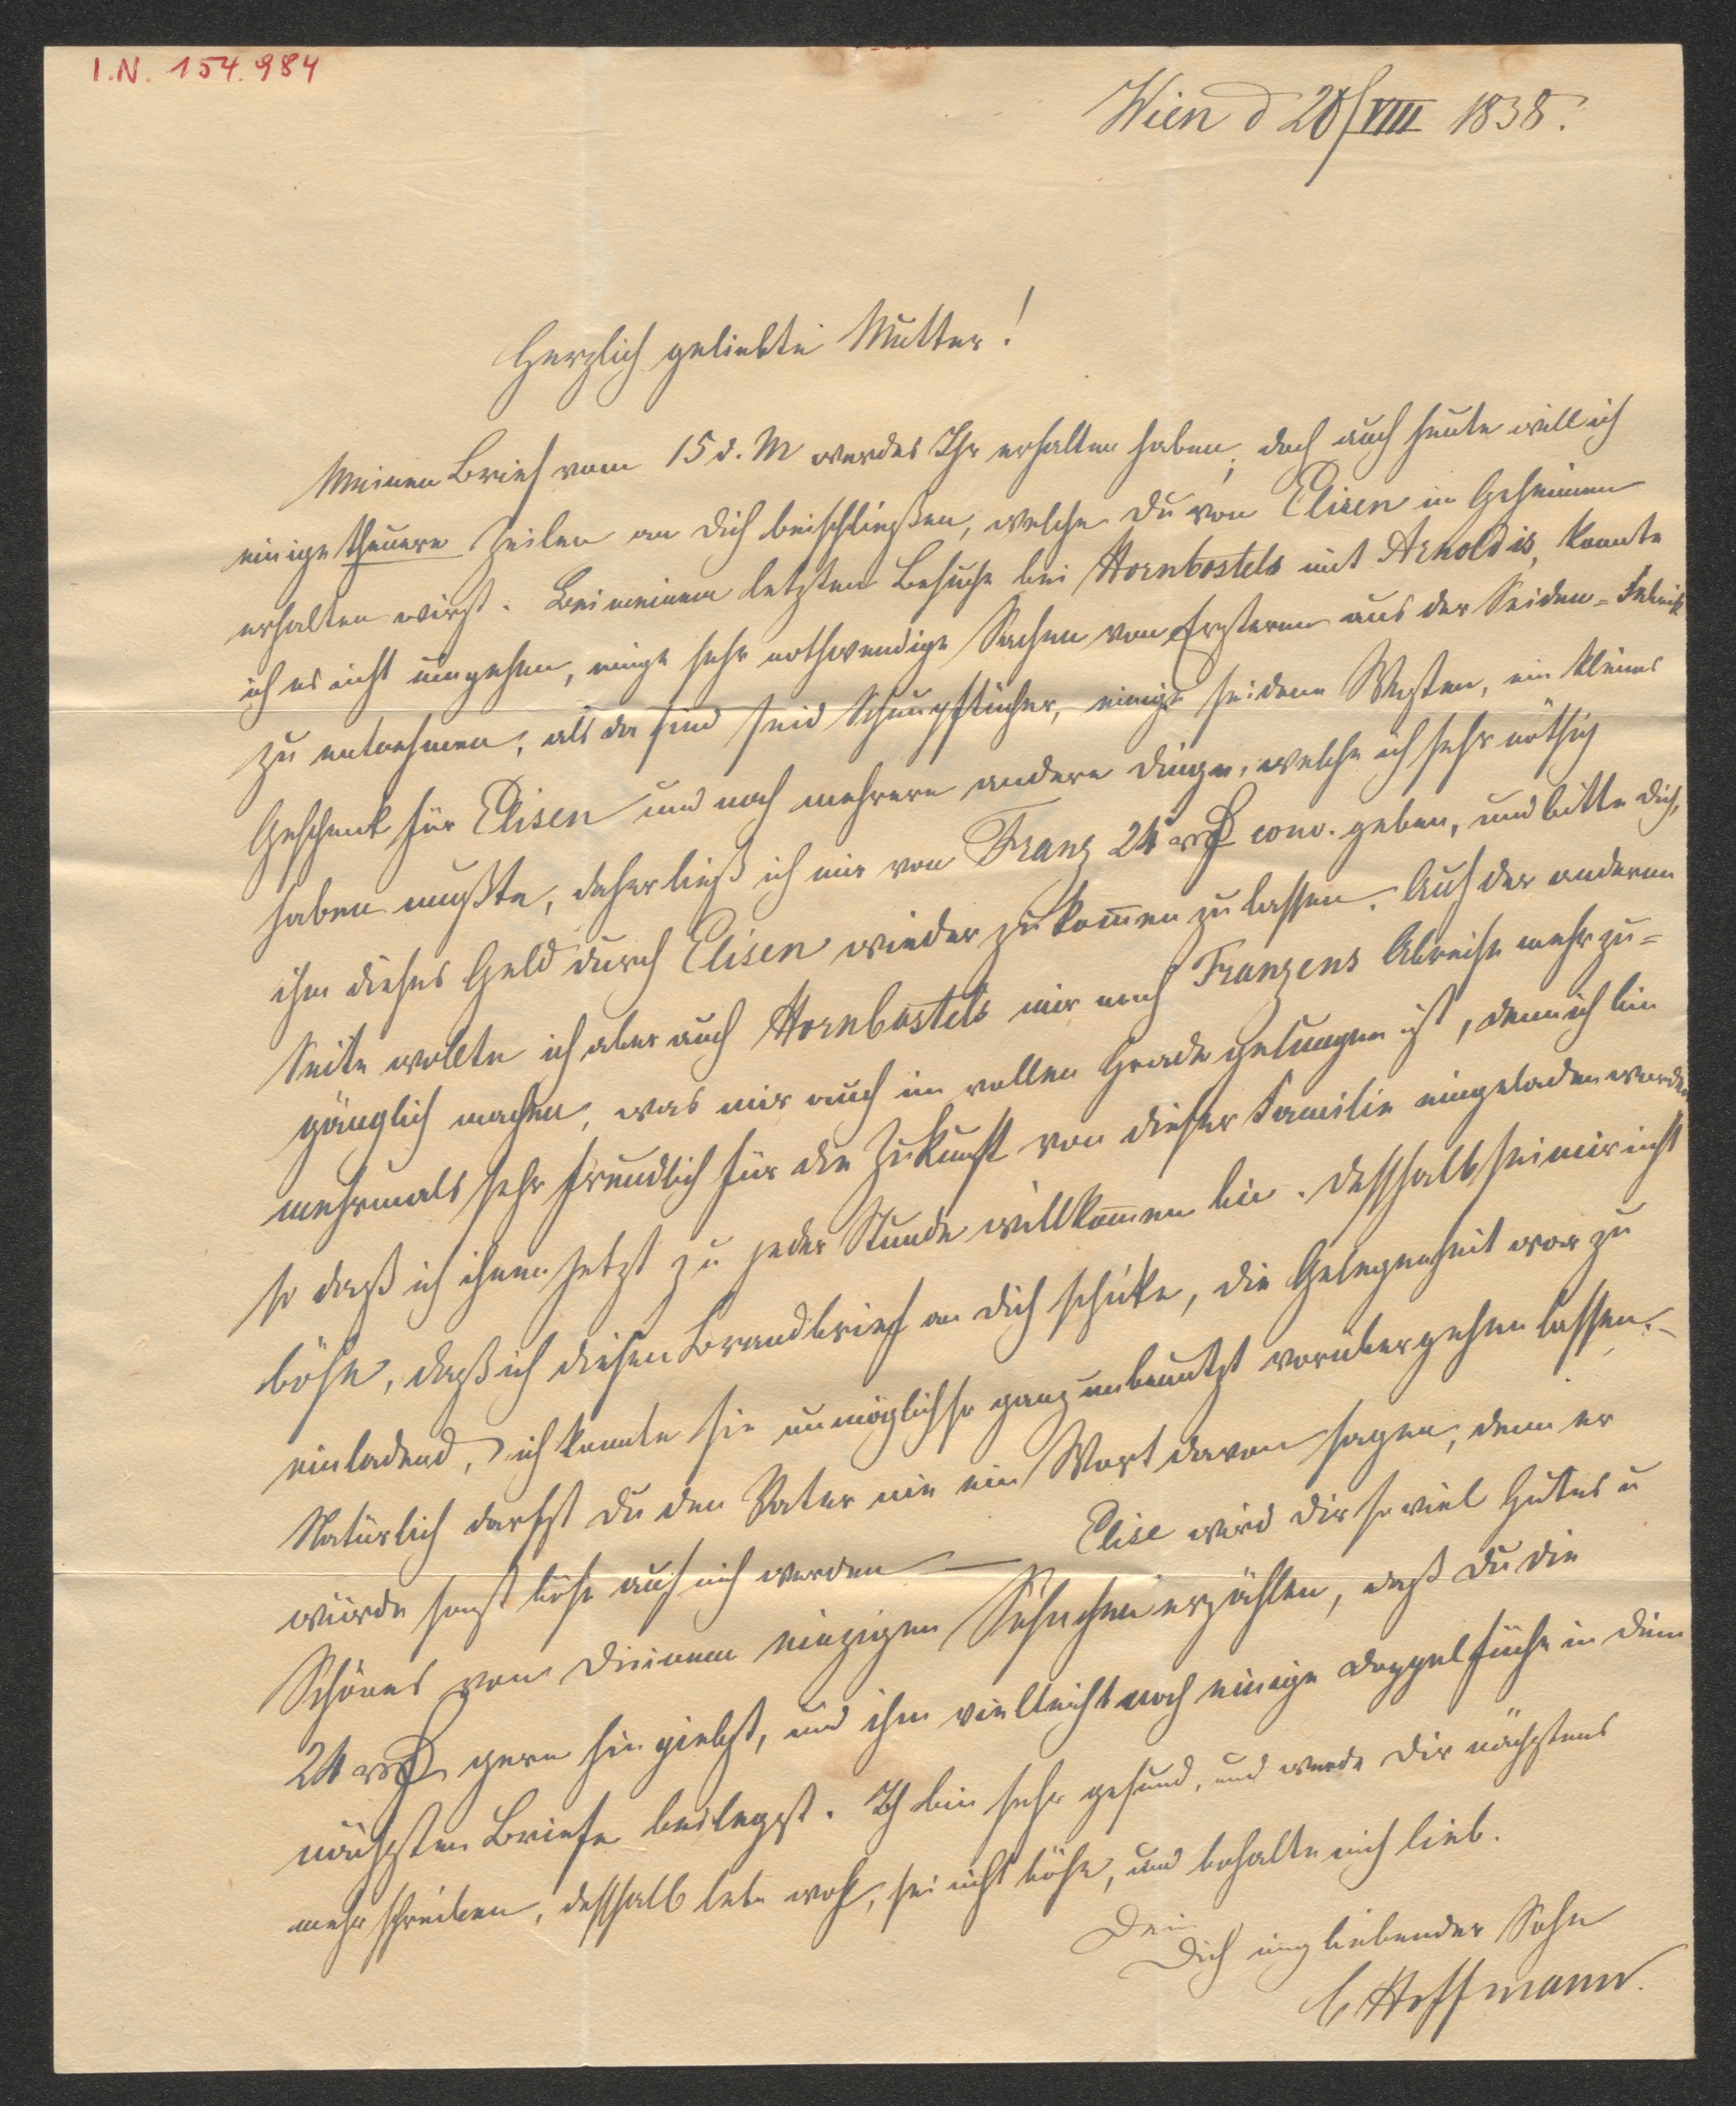 I.N. 154.984
Wien d 20/VIII 1838.
Herzlich geliebte Mutter!
Meinen Brief vom 15 d. M werdet Ihr erhalten haben; doch auch heute will ich
einige theuere Zeilen an Dich beischließen, welche Du von Elisen im Geheimen
erhalten wirst. Bei meinem letzten Besuche bei Hornbostels mit Arnoldis, konnte
ich es nicht umgehen, einige sehr nothwendige Sachen von Ersterem aus der Seiden-Fabrik
zu entnehmen; als da sind seid Schnupftücher, einige seidene Westen, ein kleines
Geschenk für Elisen und noch mehrere andere Dinge, welche ich sehr nöthig
haben mußte, daher ließ ich mir von Franz 24 conv. geben, und bitte Dich,
ihm dieses Geld durch Elisen wieder zukom̅en zu lassen. Auf der anderen
Seite wollte ich aber auch Hornbostels mir nach Franzens Abreise mehr zu=
gänglich machen, was mir auch im vollen Grade gelungen ist, denn ich bin
mehrmals sehr freundlich für die Zukunft von dieser Familie eingeladen worden
so daß ich ihnen jetzt zu jeder Stunde willkom̅en bin. Desshalb sei mir nicht
böse, daß ich diesen Brandbrief an Dich schicke, die Gelegenheit war zu
einladend, ich konnte sie unmöglich so ganz unbenutzt vorübergehen lassen. –
Natürlich darfst Du dem Vater nie ein Wort davon sagen, denn er
würde sonst böse auf mich werden — Elise wird Dir so viel Gutes u
Schönes von Deinem einzigen Söhnchen erzählen, daß Du die
24 gern hingiebst, und ihm vielleicht noch einige Doppelfüchse in dem
nächsten Briefe beilegst. Ich bin sehr gesund, und werde Dir nächstens
mehr schreiben, desshalb lebe wohl, sei nicht böse, und behalte mich lieb.
Dein
Dich innig liebender Sohn
C Hoffmann.